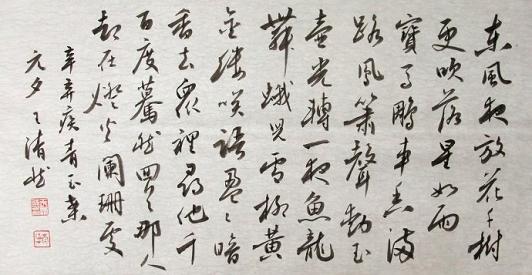 東風夜放花千樹
更吹落星如雨
寶馬鵰車香滿
路鳳簫聲動玉
壺光轉一夜魚龍
舞蛾兒雪柳黃
金縷笑語盈〻暗
香去眾裡尋他千
百度驀然回首那人
却在燈火闌珊處
辛弃疾青玉案
元夕